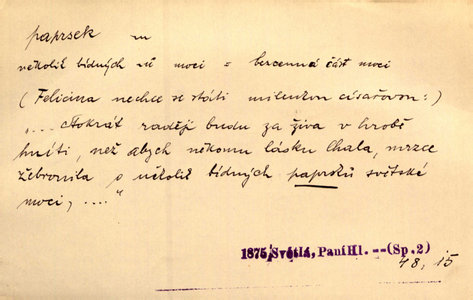 paprsek m
několik bídných ků moci = bezcenná část moci
(Felicina nechce se státi milenkou císařovou:)
"... stokrát raději budu za živa v hrobě
hníti, než abych někomu lásku lhala, mrzce
žebronila o několik bídných paprsků světské
moci, ...."
1875, Světlá, Paní Hl. -- (Sp. 2)
48, 15